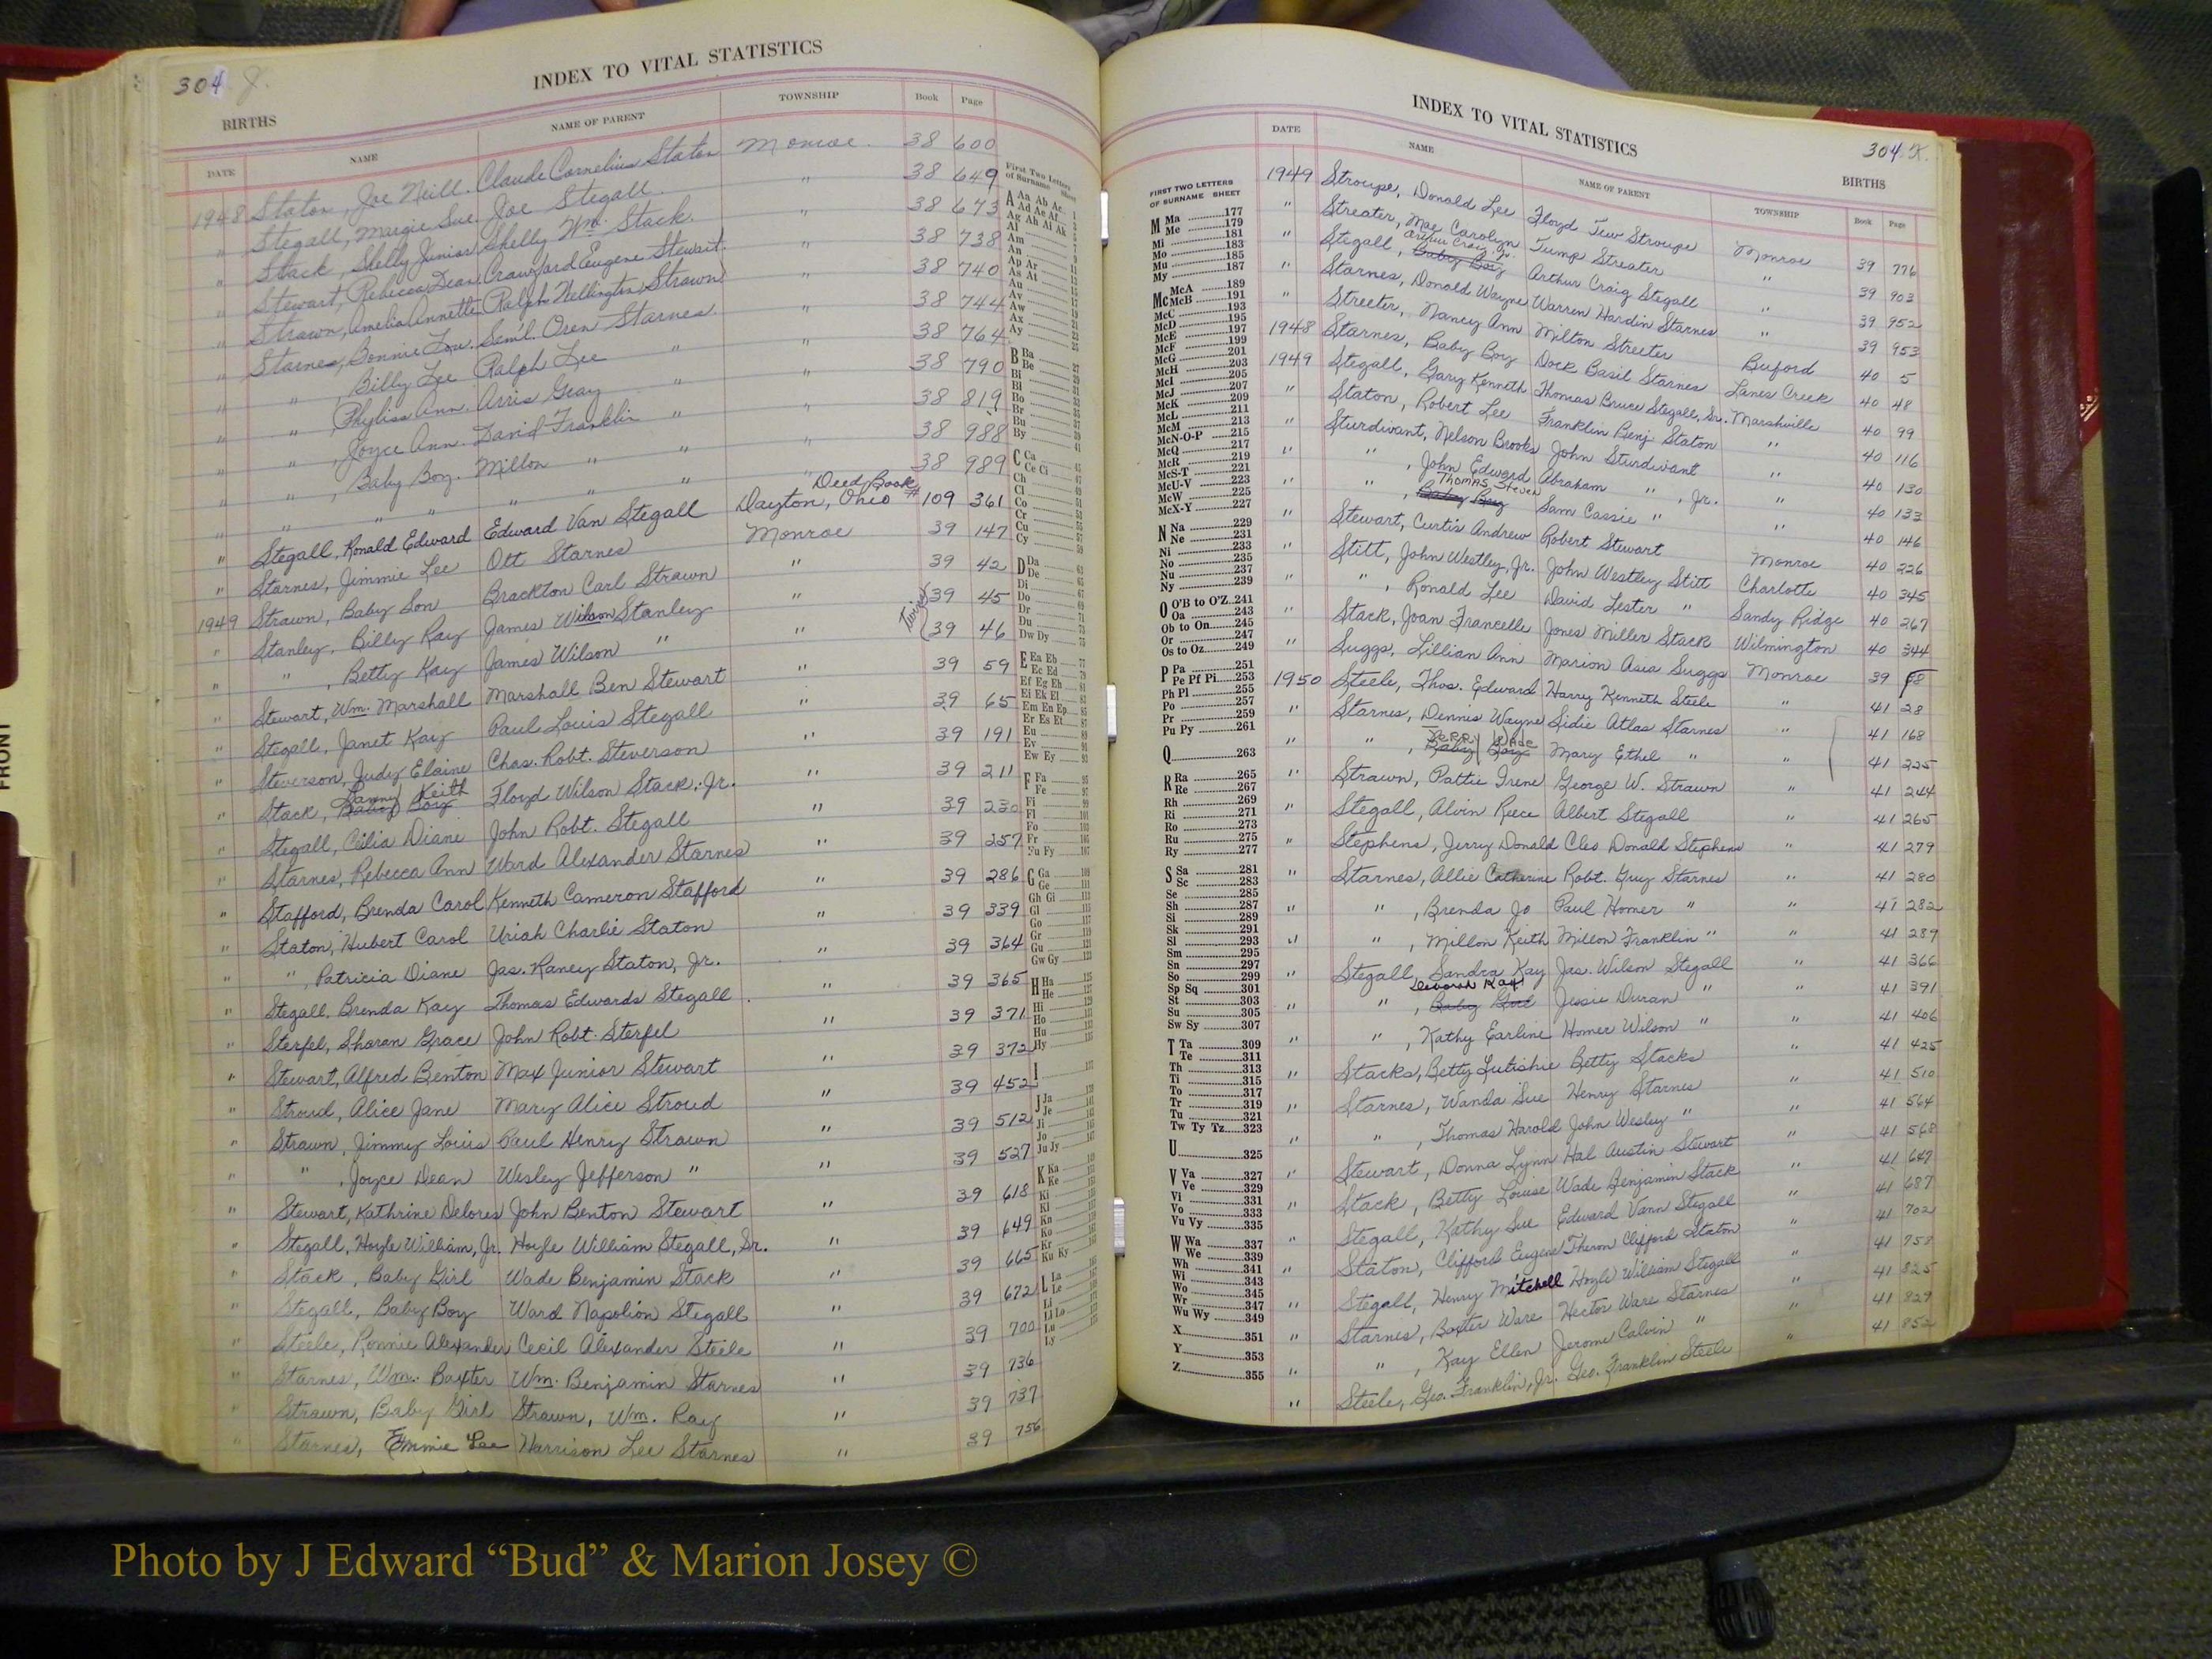 304 J.
INDEX TO VITAL STATISTICS
BIRTHS
DATE NAME NAME OF PARENT TOWNSHIP Book Page
1948 Staton, Joe Neill. Claude Cornelius Staton Monroe. 38 600
" Stegall, Margie Sue Joe Stegall. " 38 649
" Stack, Shelly Junior Shelly Wm. Stack. " 38 673
" Stewart, Rebecca Dean. Crawford Eugene Stewart. " 38 738
" Strawn, Amelia Annette Ralph Wellington Strawn " 38 740
" Starnes, Bonnie Lou. Sam'l. Oren Starnes. " 38 744
" " , Billy Lee Ralph Lee " " 38 764
" " , Phyliss Ann. Arris Gray " " 38 790
" " , Joyce Ann. David Franklin " " 38 819
" " , Baby Boy. Millon " " " 38 988
" " " " " " " " 38 989
" Stegall, Ronald Edward Edward Van Stegall Dayton, Ohio Deed Book # 109 361
" Starnes, Jimmie Lee Ott Starnes Monroe 39 147
1949 Strawn, Baby Son Brackton Carl Strawn " 39 42
" Stanley, Billy Ray James Wilson Stanley " Twins 39 45
" " , Betty Kay James Wilson " " 39 46
" Stewart, Wm. Marshall Marshall Ben Stewart " 39 59
" Stegall, Janet Kay Paul Louis Stegall " 39 65
" Steverson, Judy Elaine Chas. Robt. Steverson " 39 191
" Stack, Baby Boy Keith Floyd Wilson Stack, Jr. " 39 211
" Stegall, Celia Diane John Robt. Stegall " 39 230
" Starnes, Rebecca Ann Ward Alexander Starnes " 39 257
" Stafford, Brenda Carol Kenneth Cameron Stafford " 39 286
" Staton, Hubert Carol Uriah Charlie Staton " 39 339
" " , Patricia Diane Jas. Raney Staton, Jr. " 39 364
" Stegall, Brenda Kay Thomas Edwards Stegall " 39 365
" Sterfel, Sharan Grace John Robt. Sterfel " 39 371
" Stewart, Alfred Benton Max Junior Stewart " 39 372
" Stroud, Alice Jane Mary Alice Stroud " 39 452
" Strawn, Jimmy Louis Paul Henry Strawn " 39 512
" " , Joyce Dean Wesley Jefferson " " 39 527
" Stewart, Kathrine Delores John Benton Stewart " 39 618
" Stegall, Hoyle William, Jr. Hoyle William Stegall, Sr. " 39 649
" Stack, Baby Girl Wade Benjamin Stack " 39 665
" Stegall, Baby Boy Ward Napolion Stegall " 39 672
" Steele, Ronnie Alexander Cecil Alexander Steele " 39 700
" Starnes, Wm. Baxter Wm. Benjamin Starnes " 39 736
" Strawn, Baby Girl Strawn, Wm. Ray " 39 737
" Starnes, Emmie Lee Harrison Lee Starnes " 39 756
First Two Letters
of Surname Sheet
A Aa Ab Ac
Ad Ae Af
Ag Ah Ai Ak
Al
Am
An
Ap Ar
As At
Au
Av
Aw
Ax
Ay
B Ba
Be
Bi
Bl
Bo
Br
Bu
By
C Ca
Ce Ci
Ch
Cl
Co
Cr
Cu
Cy
D Da
De
Di
Do
Dr
Du
Dw Dy
E Ea Eb
Ec Ed
Ef Eg Eh
Ei Ek El
Em En Ep
Er Es Et
Eu
Ev
Ew Ey
F Fa
Fe
Fi
Fl
Fo
Fr
Fu Fy
G Ga
Ge
Gh Gi
Gl
Go
Gr
Gu
Gw Gy
H Ha
He
Hi
Ho
Hu
Hy
I
J Ja
Je
Ji
Jo
Ju Jy
K Ka
Ke
Ki
Kl
Kn
Ko
Kr
Ku Ky
L La
Le
Li
Ll Lo
Lu
Ly
INDEX TO VITAL STATISTICS
304 K.
BIRTHS
DATE NAME NAME OF PARENT TOWNSHIP Book Page
FIRST TWO LETTERS
OF SURNAME SHEET
M Ma 177
Me 179
Mi 181
Mo 183
Mu 185
My 187
Mc McA 189
McB 191
McC 193
McD 195
McE 197
McF 199
McG 201
McH 203
McI 205
McJ 207
McK 209
McL 211
McM 213
McN-O-P 215
McQ 217
McR 219
McS-T 221
McU-V 223
McW 225
McX-Y 227
N Na 229
Ne 231
Ni 233
No 235
Nu 237
Ny 239
O O'B to O'Z 241
Oa 243
Ob to On 245
Or 247
Os to Oz 249
P Pa 251
Pe Pf Pi 253
Ph Pl 255
Po 257
Pr 259
Pu Py 261
Q 263
R Ra 265
Re 267
Rh 269
Ri 271
Ro 273
Ru 275
Ry 277
S Sa 281
Sc 283
Se 285
Sh 287
Si 289
Sk 291
Sl 293
Sm 295
Sn 297
So 299
Sp Sq 301
St 303
Su 305
Sw Sy 307
T Ta 309
Te 311
Th 313
Ti 315
To 317
Tr 319
Tu 321
Tw Ty Tz 323
U 325
V Va 327
Ve 329
Vi 331
Vo 333
Vu Vy 335
W Wa 337
We 339
Wh 341
Wi 343
Wo 345
Wr 347
Wu Wy 349
X 351
Y 353
Z 355
1949 Stroupe, Donald Lee Floyd Tew Stroupe Monroe 39 776
" Streater, Mae Carolyn Tump Streater " 39 903
" Stegall, Baby Boy Arthur Craig Jr. Arthur Craig Stegall " 39 952
" Starnes, Donald Wayne Warren Hardin Starnes " 39 953
" Streeter, Nancy Ann Milton Streeter Buford 40 5
1948 Starnes, Baby Boy Dock Basil Starnes Lanes Creek 40 48
1949 Stegall, Gary Kenneth Thomas Bruce Stegall, Sr. Marshville 40 99
" Staton, Robert Lee Franklin Benj. Staton " 40 116
" Sturdivant, Nelson Brooks John Sturdivant " 40 130
" " , John Edward Abraham " , Jr. " 40 133
" " , Baby Boy Thomas Steven Sam Cassie " " 40 146
" Stewart, Curtis Andrew Robert Stewart Monroe 40 226
" Stitt, John Westley, Jr. John Westley Stitt Charlotte 40 345
" " , Ronald Lee David Lester " Sandy Ridge 40 267
" Stack, Joan Francelle Jones Miller Stack Wilmington 40 344
" Suggs, Lillian Ann Marion Asia Suggs Monroe 39
1950 Steele, Thos. Edward Harry Kenneth Steele " 41 28
" Starnes, Dennis Wayne Sidie Atlas Starnes " 41 168
" " , Baby Boy Jerry Wade Mary Ethel " " 41 225
" Strawn, Pattie Irene George W. Strawn " 41 244
" Stegall, Alvin Reece Albert Stegall " 41 265
" Stephens, Jerry Donald Cleo Donald Stephens " 41 279
" Starnes, Allie Catherine Robt. Guy Starnes " 41 280
" " , Brenda Jo Paul Homer " " 41 282
" " , Millon Keith Millon Franklin " " 41 289
" Stegall, Sandra Kay Jas. Wilson Stegall " 41 366
" " , Baby Girl Deborah Kay Jessie Duran " " 41 391
" " , Kathy Earline Homer Wilson " " 41 406
" Stacks, Betty Lutishie Betty Stacks " 41 425
" Starnes, Wanda Sue Henry Starnes " 41 510
" " , Thomas Harold John Wesley " " 41 564
" Stewart, Donna Lynn Hal Austin Stewart " 41 568
" Stack, Betty Louise Wade Benjamin Stack " 41 647
" Stegall, Kathy Sue Edward Vann Stegall " 41 687
" Staton, Clifford Eugene Theron Clifford Staton " 41 702
" Stegall, Henry Mitchell Hoyle William Stegall " 41 758
" Starnes, Baxter Ware Hector Ware Starnes " 41 825
" " , Kay Ellen Jerome Calvin " " 41 829
" Steele, Geo. Franklin, Jr. Geo. Franklin Steele " 41 852
FRONT
Photo by J Edward “Bud” & Marion Josey ©